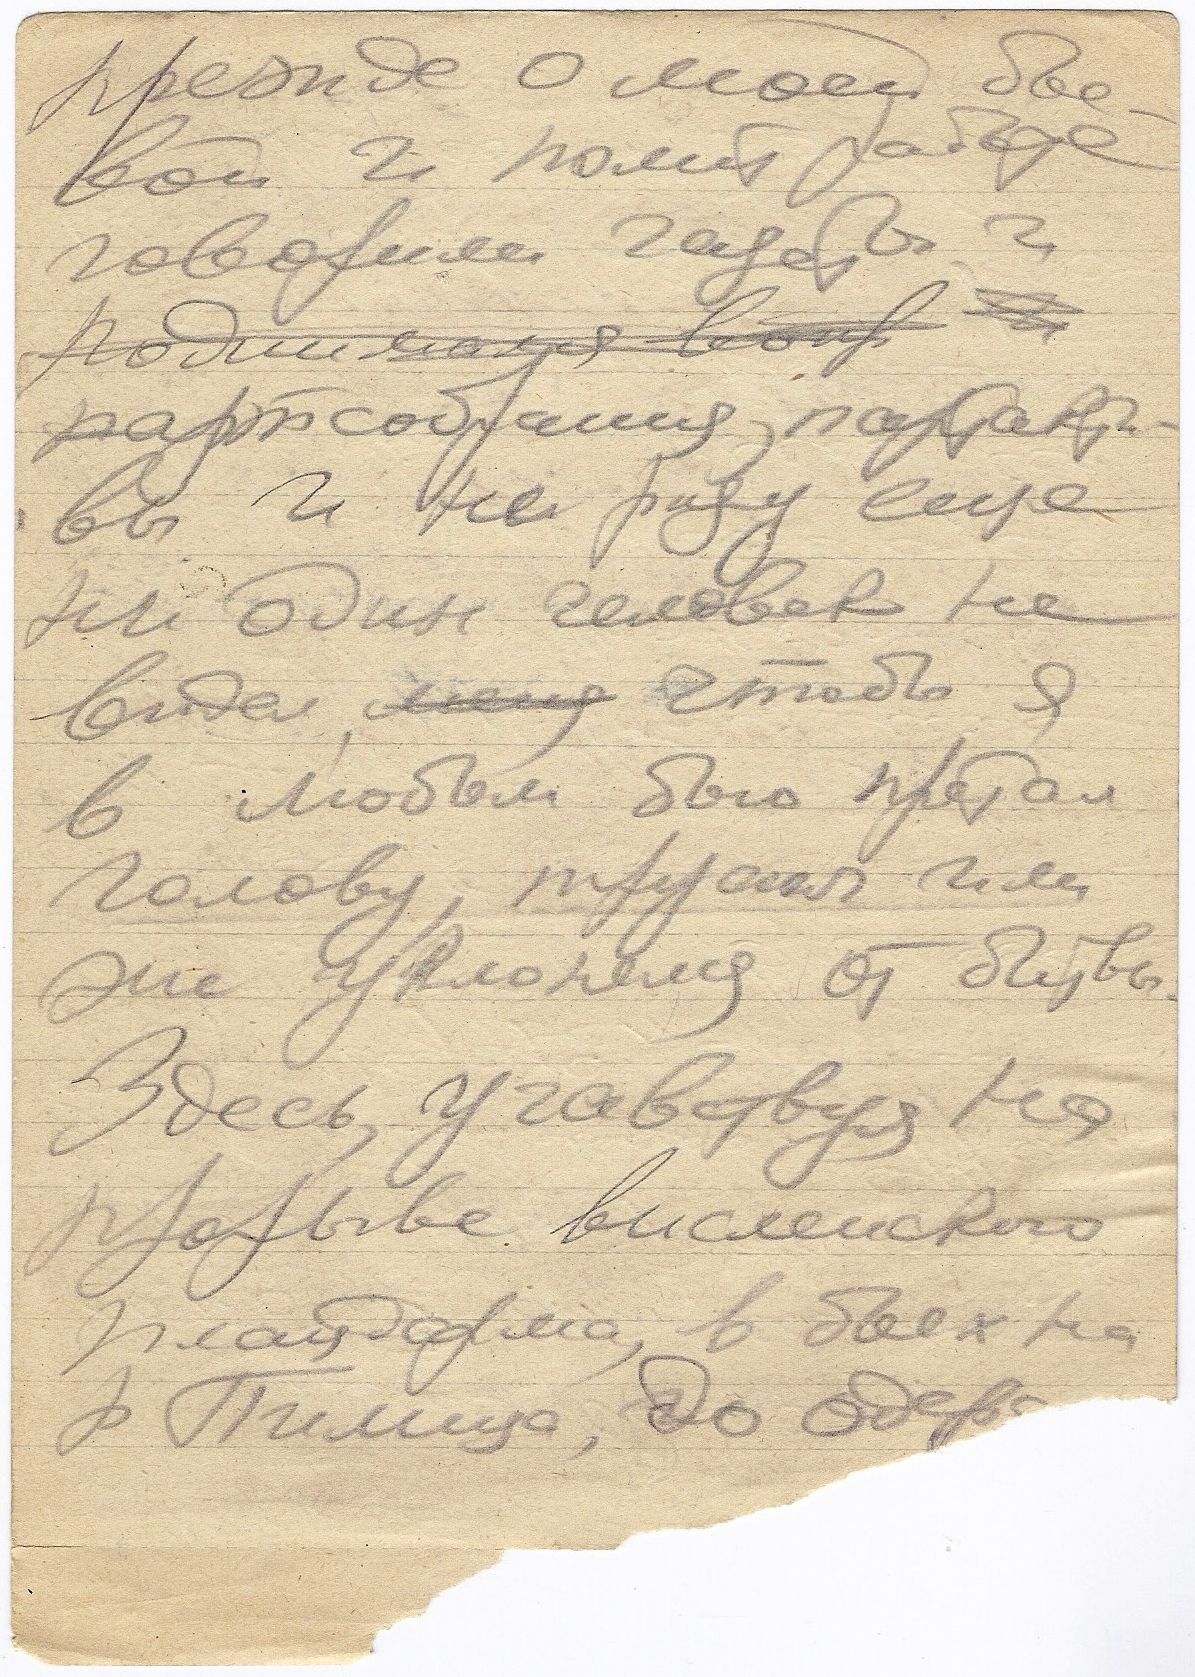 прежде о моей бое-
вой и полит работе
говорили газеты и
поднимался вопр
партсобрания, партакти-
вы и ни разу еще
ни один человек не
видел, меня чтобы я
в любом бою прятал
голову, трусил или
же уклонялся от битвы.
Здесь, участвуя на
прорыве висленского
плацдарма, в боях на
р Пилица, до одера